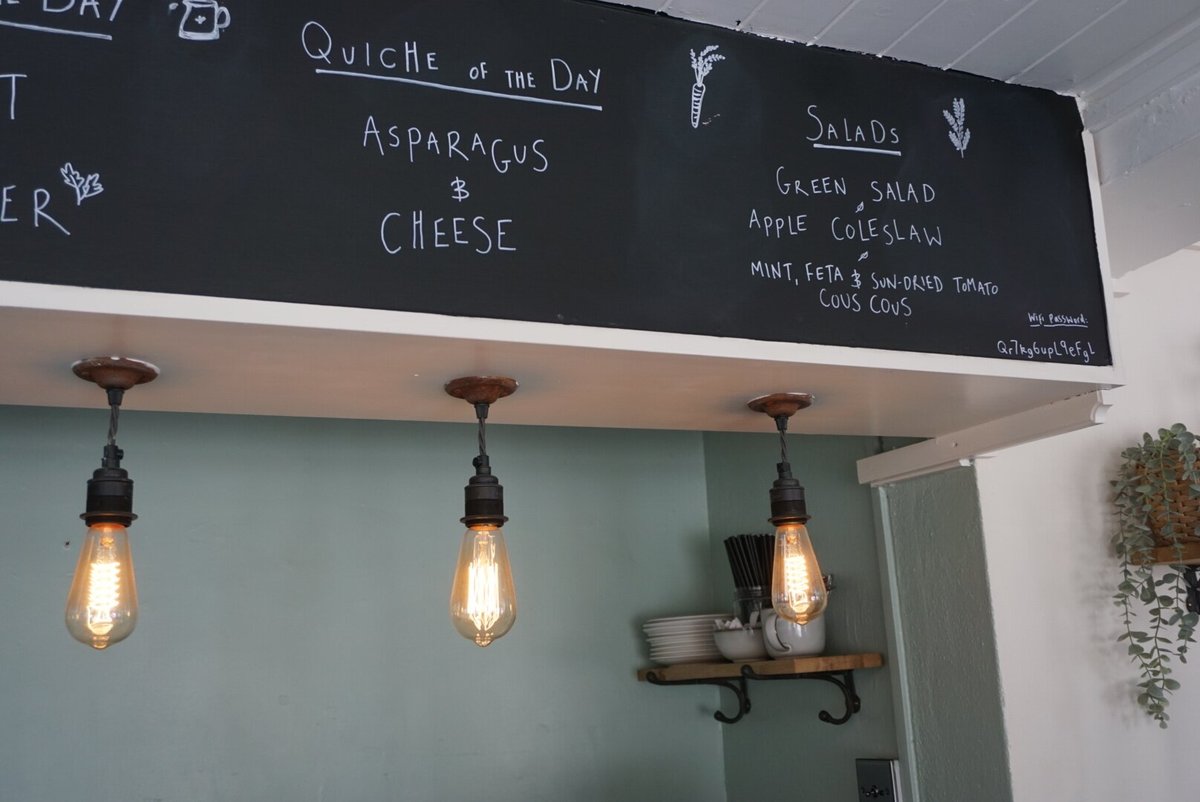 DAY
QUICHE OF THE DAY
ASPARAGUS
&
CHEESE
SALADS
GREEN SALAD
APPLE COLESLAW
MINT, FETA & SUN-DRIED TOMATO
COUS COUS
Wifi Password:
Qr7kg6upL9eFgL